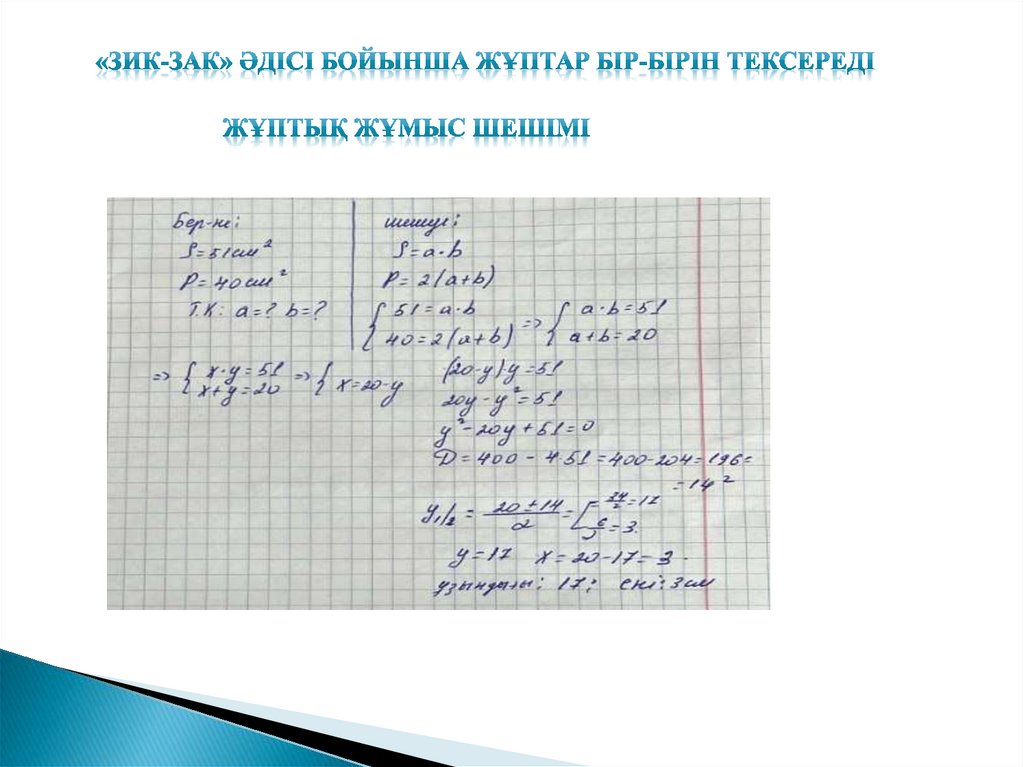 «ЗИК-ЗАК» ӘДІСІ БОЙЫНША ЖҰПТАР БІР-БІРІН ТЕКСЕРЕДІ
ЖҰПТЫҚ ЖҰМЫС ШЕШІМІ
Бер-не:
S=51см²
P=40см²
Т.К: a=? b=?
шешуі:
S=a·b
P=2(a+b)
{51=a·b
40=2(a+b) => {a·b=51
a+b=20
=> {x·y=51
x+y=20 => {x=20-y
(20-y)y=51
20y-y²=51
y²-20y+51=0
D=400-4·51=400-204=196=
=14²
y₁/₂ = 20±14/2 = [34/2=17
6/2=3.
y=17 x=20-17=3.
ұзындығы: 17; ені:3см